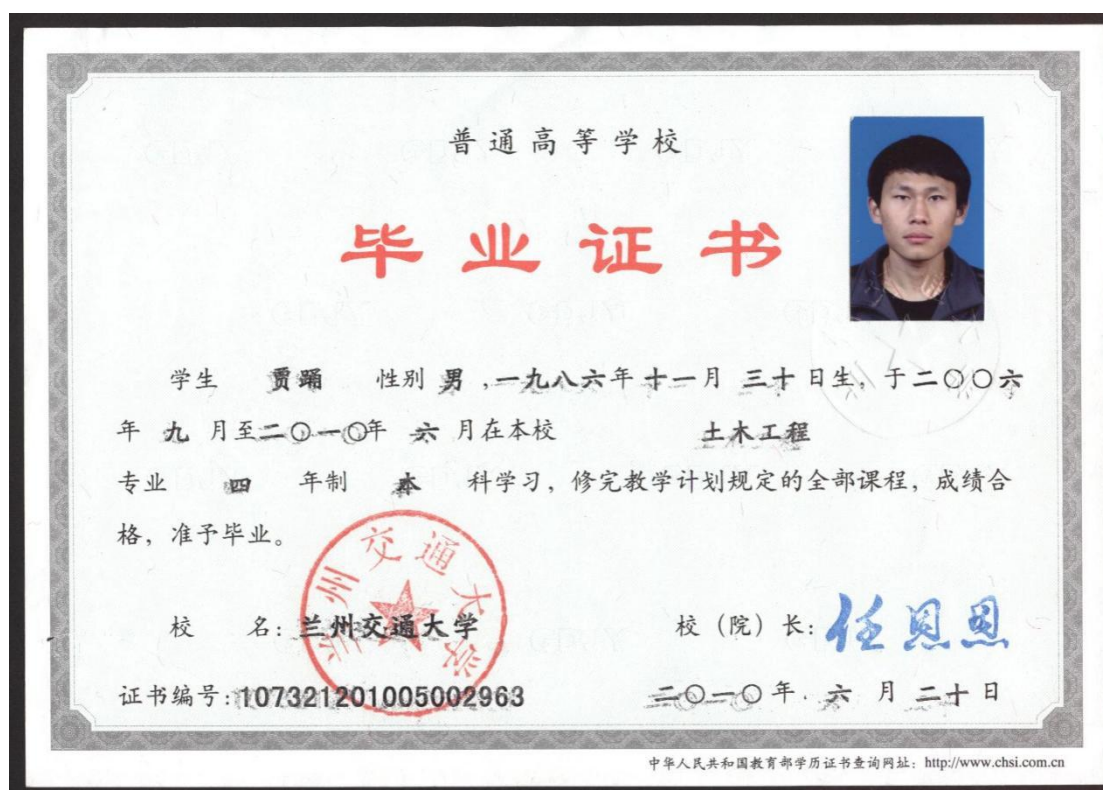 普通高等学校
毕业证书
学生 贾踊 性别 男 ,一九八六年 十一月 三十 日生，于二〇〇六
年 九 月至二〇一〇年 六 月在本校 土木工程
专业 四 年制 本 科学习，修完教学计划规定的全部课程，成绩合
格，准予毕业。
兰州交通大学
校 名：兰州交通大学 校（院）长：任恩恩
证书编号：107321201005002963 二〇一〇年 六 月 二十 日
中华人民共和国教育部学历证书查询网址：http://www.chsi.com.cn